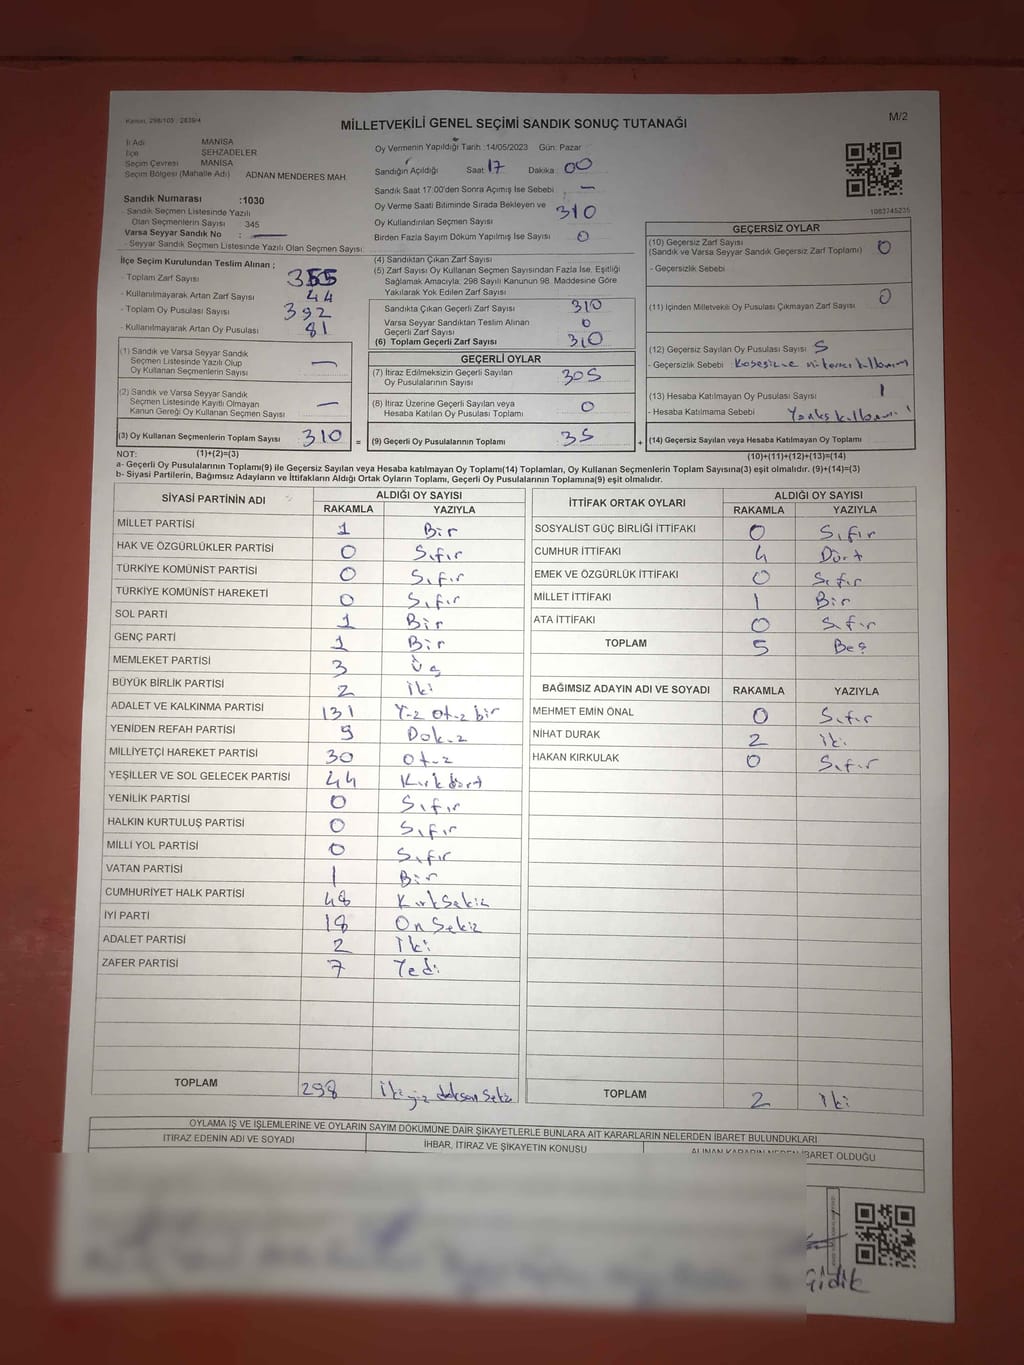 Kanun, 298/105 : 2839/4
M/2
MİLLETVEKİLİ GENEL SEÇİMİ SANDIK SONUÇ TUTANAĞI
İl Adı MANİSA
İlçe ŞEHZADELER
Seçim Çevresi MANİSA
Seçim Bölgesi (Mahalle Adı) ADNAN MENDERES MAH.
Sandık Numarası :1030
- Sandık Seçmen Listesinde Yazılı
Olan Seçmenlerin Sayısı 345
Varsa Seyyar Sandık No :
- Seyyar Sandık Seçmen Listesinde Yazılı Olan Seçmen Sayısı:
Oy Vermenin Yapıldığı Tarih :14/05/2023 Gün: Pazar
Sandığın Açıldığı Saat 17 Dakika 00
Sandık Saat 17:00'den Sonra Açımış İse Sebebi : —
Oy Verme Saati Bitiminde Sırada Bekleyen ve
Oy Kullandırılan Seçmen Sayısı 310
Birden Fazla Sayım Döküm Yapılmış İse Sayısı 0
1083745235
İlçe Seçim Kurulundan Teslim Alınan ;
- Toplam Zarf Sayısı
- Kullanılmayarak Artan Zarf Sayısı 44
- Toplam Oy Pusulası Sayısı 392
- Kullanılmayarak Artan Oy Pusulası 81
(1) Sandık ve Varsa Seyyar Sandık
Seçmen Listesinde Yazılı Olup
Oy Kullanan Seçmenlerin Sayısı —
(2) Sandık ve Varsa Seyyar Sandık
Seçmen Listesinde Kayıtlı Olmayan
Kanun Gereği Oy Kullanan Seçmen Sayısı —
(3) Oy Kullanan Seçmenlerin Toplam Sayısı 310 =
(4) Sandıktan Çıkan Zarf Sayısı
(5) Zarf Sayısı Oy Kullanan Seçmen Sayısından Fazla İse, Eşitliği
Sağlamak Amacıyla; 298 Sayılı Kanunun 98. Maddesine Göre
Yakılarak Yok Edilen Zarf Sayısı
Sandıkta Çıkan Geçerli Zarf Sayısı 310
Varsa Seyyar Sandıktan Teslim Alınan
Geçerli Zarf Sayısı 0
(6) Toplam Geçerli Zarf Sayısı 310
GEÇERLİ OYLAR
(7) İtiraz Edilmeksizin Geçerli Sayılan
Oy Pusulalarının Sayısı 305
(8) İtiraz Üzerine Geçerli Sayılan veya
Hesaba Katılan Oy Pusulası Toplamı 0
(9) Geçerli Oy Pusulalarının Toplamı 35 +
GEÇERSİZ OYLAR
(10) Geçersiz Zarf Sayısı
(Sandık ve Varsa Seyyar Sandık Geçersiz Zarf Toplamı) 0
- Geçersizlik Sebebi
(11) İçinden Milletvekili Oy Pusulası Çıkmayan Zarf Sayısı 0
(12) Geçersiz Sayılan Oy Pusulası Sayısı 5
- Geçersizlik Sebebi
(13) Hesaba Katılmayan Oy Pusulası Sayısı 1
- Hesaba Katılmama Sebebi
(14) Geçersiz Sayılan veya Hesaba Katılmayan Oy Toplamı
NOT: (1)+(2)=(3) (10)+(11)+(12)+(13)=(14)
a- Geçerli Oy Pusulalarının Toplamı(9) ile Geçersiz Sayılan veya Hesaba katılmayan Oy Toplamı(14) Toplamları, Oy Kullanan Seçmenlerin Toplam Sayısına(3) eşit olmalıdır. (9)+(14)=(3)
b- Siyasi Partilerin, Bağımsız Adayların ve İttifakların Aldığı Ortak Oyların Toplamı, Geçerli Oy Pusulalarının Toplamına(9) eşit olmalıdır.
SİYASİ PARTİNİN ADI ALDIĞI OY SAYISI
RAKAMLA YAZIYLA
MİLLET PARTİSİ 1 Bir
HAK VE ÖZGÜRLÜKLER PARTİSİ 0 Sıfır
TÜRKİYE KOMÜNİST PARTİSİ 0 Sıfır
TÜRKİYE KOMÜNİST HAREKETİ 0 Sıfır
SOL PARTİ 1 Bir
GENÇ PARTİ 1 Bir
MEMLEKET PARTİSİ 3 Üç
BÜYÜK BİRLİK PARTİSİ 2 İki
ADALET VE KALKINMA PARTİSİ 131 Yüz otuz bir
YENİDEN REFAH PARTİSİ 9 Dokuz
MİLLİYETÇİ HAREKET PARTİSİ 30 Otuz
YEŞİLLER VE SOL GELECEK PARTİSİ 44 Kırkdört
YENİLİK PARTİSİ 0 Sıfır
HALKIN KURTULUŞ PARTİSİ 0 Sıfır
MİLLİ YOL PARTİSİ 0 Sıfır
VATAN PARTİSİ 1 Bir
CUMHURİYET HALK PARTİSİ 48 Kırksekiz
İYİ PARTİ 18 Onsekiz
ADALET PARTİSİ 2 İki
ZAFER PARTİSİ 7 Yedi
TOPLAM 298 İkiyüz doksan sekiz
İTTİFAK ORTAK OYLARI ALDIĞI OY SAYISI
RAKAMLA YAZIYLA
SOSYALİST GÜÇ BİRLİĞİ İTTİFAKI 0 Sıfır
CUMHUR İTTİFAKI 4 Dört
EMEK VE ÖZGÜRLÜK İTTİFAKI 0 Sıfır
MİLLET İTTİFAKI 1 Bir
ATA İTTİFAKI 0 Sıfır
TOPLAM 5 Beş
BAĞIMSIZ ADAYIN ADI VE SOYADI RAKAMLA YAZIYLA
MEHMET EMİN ÖNAL 0 Sıfır
NİHAT DURAK 2 İki
HAKAN KIRKULAK 0 Sıfır
TOPLAM 2 İki
OYLAMA İŞ VE İŞLEMLERİNE VE OYLARIN SAYIM DÖKÜMÜNE DAİR ŞİKAYETLERLE BUNLARA AİT KARARLARIN NELERDEN İBARET BULUNDUKLARI
İTİRAZ EDENİN ADI VE SOYADI İHBAR, İTİRAZ VE ŞİKAYETİN KONUSU ALINAN KARARIN NEDEN İBARET OLDUĞU
Gidik